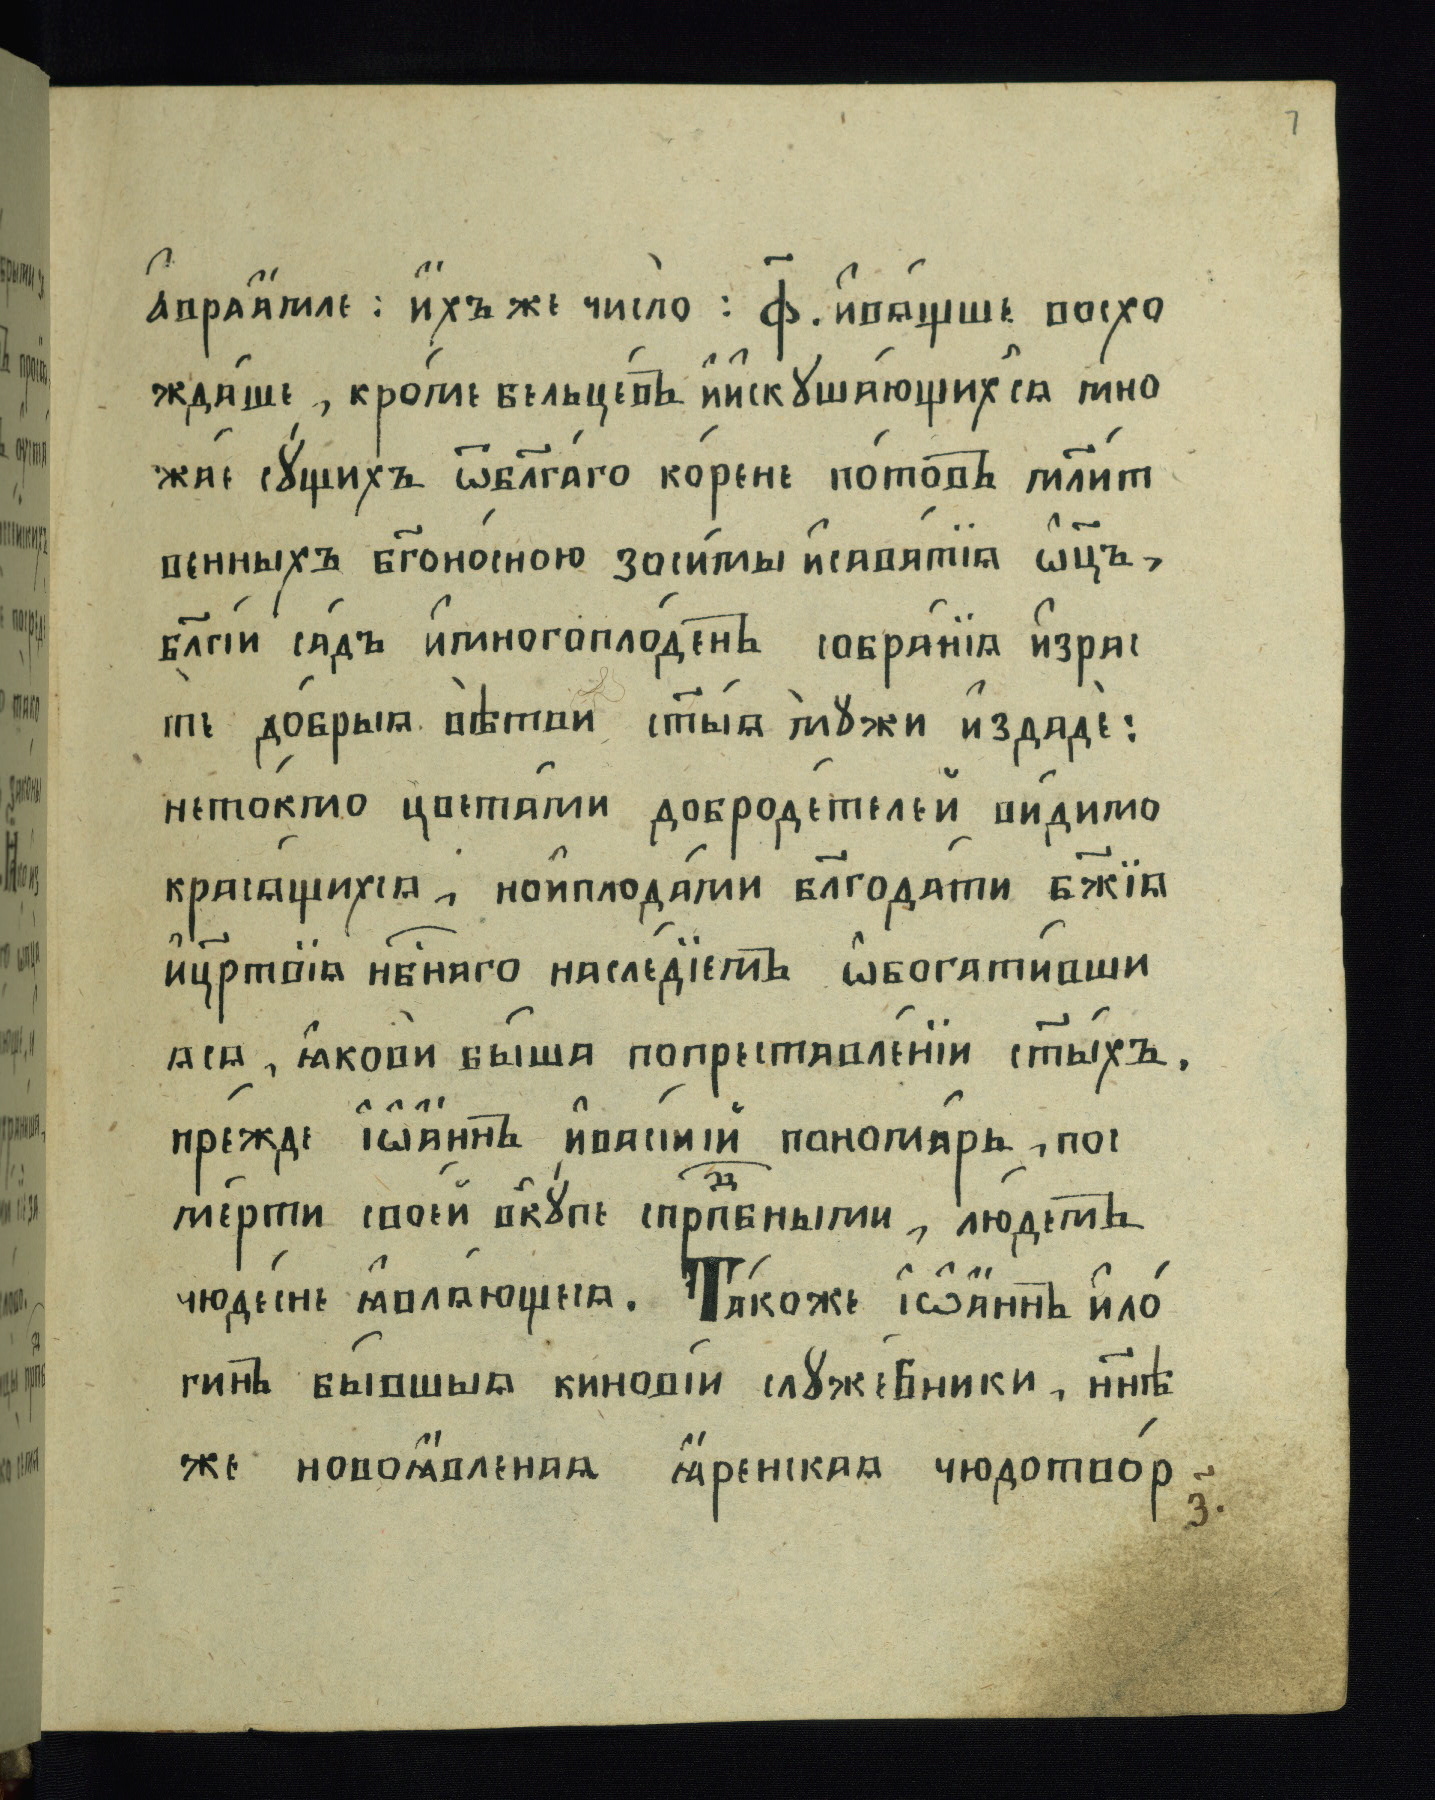 7
А҆враа́мле : и҆́хъ же число̀ : ф҃. и҆вѧ́щше восхо
жда́ше , кро́ме бельце́въ и҆и҆скꙋша́ющихсѧ мно
жа́е сꙋ́щихъ ѿбл҃га́го ко́рене по́томъ мл҃и́т
венныхъ бг҃оно́сною зоси́мы и҆сава́тїа ѻ҆ц҃ъ ,
бл҃гі́й са́дъ и҆многопло́денъ собра́нїа и҆зрас
тѐ до́брыѧ вѣ̀тви ст҃ы́ѧ мꙋ̀жи и҆здадѐ :
нето́кмо цвета́ми доброде́телей ви́димо
краса́щихсѧ , нои҆плода́ми бл҃года́ти бж҃їѧ
и҆цр҃твїѧ нб҃наго насле́дїемъ ѡ҆богати́вши
ѧсѧ , ꙗ҆ковѝ бы́ша попреставле́нїи ст҃ы́хъ .
пре́жде і҆ѡ҆а́ннъ и҆васі́лій поном́арь , пос
ме́рти свое́й вкꙋ́пе спрп҃дбными , лю́демъ
чюде́сне ꙗ҆влѧ́ющесѧ . Та́коже і҆ѡ҆а́ннъ и҆ло́
гинъ бы́вшыѧ кинові́и слꙋже́бники , нн҃ѣ
же новоꙗ҆вленаѧ ꙗ҆́ренскаѧ чюдотво́р
з҃.